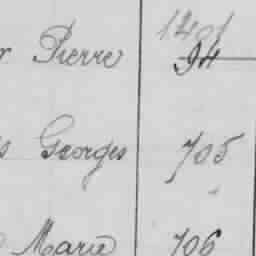 Pierre 94
Georges 705
Marie 706